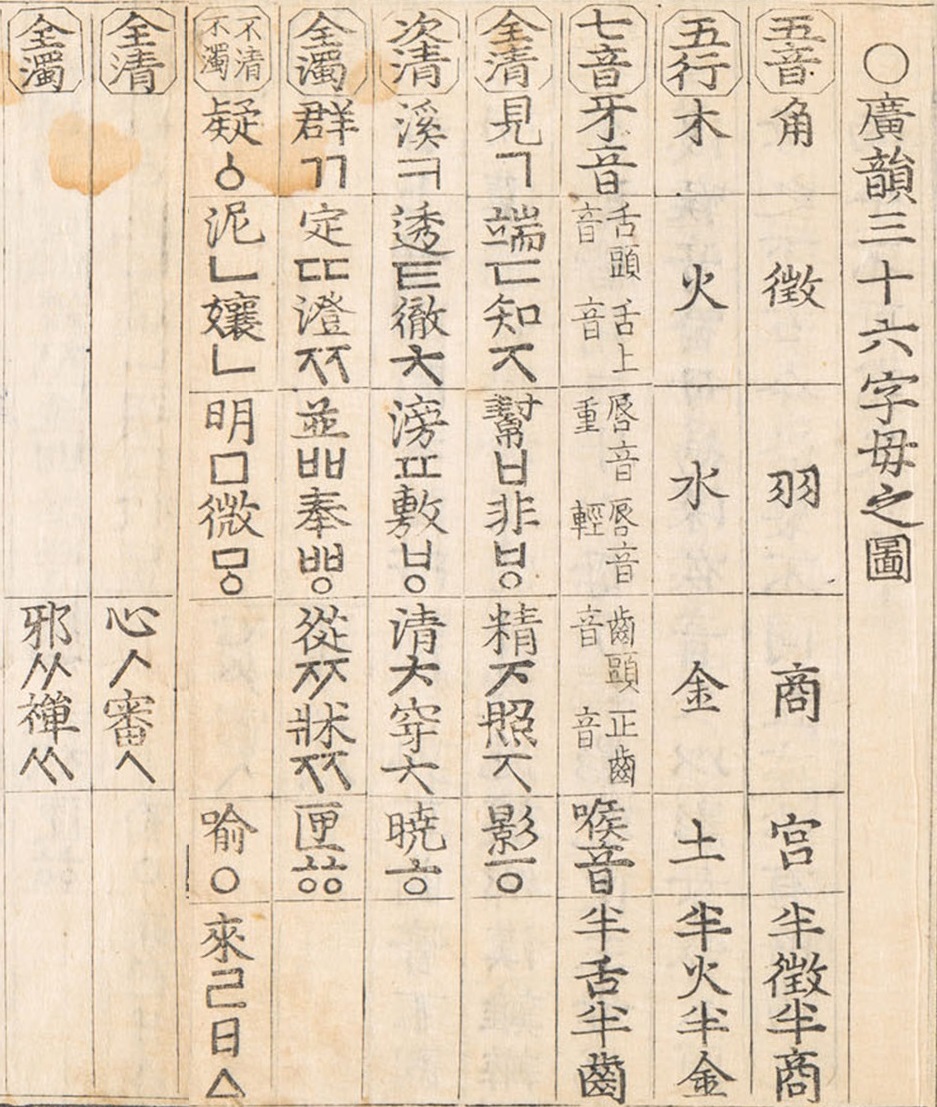 〇廣韻三十六字母之圖
五音 角 徵 羽 商 宮 半徵半商
五行 木 火 水 金 土 半火半金
七音 牙音 舌頭音 舌上音 唇音重 唇音輕 齒頭音 正齒音 喉音 半舌半齒
全清 見ㄱ 端ㄷ 知ㅈ 幫ㅂ 非ㅸ 精ᅎ 照ᅐ 影ㆆ
次清 溪ㅋ 透ㅌ 徹ㅊ 滂ㅍ 敷ㅸ 清ᅔ 穿ᅕ 曉ㅎ
全濁 群ㄲ 定ㄸ 澄ㅉ 並ㅃ 奉ㅹ 從ᅏ 狀ᅑ 匣ㆅ
不清不濁 疑ㆁ 泥ㄴ 孃ㄴ 明ㅁ 微ㅱ 喻ㅇ 來ㄹ 日ㅿ
全清 心ᄼ 審ᄾ
全濁 邪ᄽ 禪ᄿ